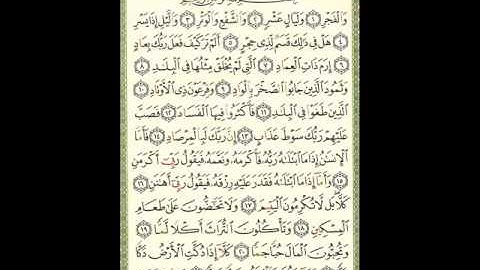 وَالْفَجْرِ ۝١ وَلَيَالٍ عَشْرٍ ۝٢ وَالشَّفْعِ وَالْوَتْرِ ۝٣ وَاللَّيْلِ إِذَا يَسْرِ
۝٤ هَلْ فِي ذَٰلِكَ قَسَمٌ لِّذِي حِجْرٍ ۝٥ أَلَمْ تَرَ كَيْفَ فَعَلَ رَبُّكَ بِعَادٍ
۝٦ إِرَمَ ذَاتِ الْعِمَادِ ۝٧ الَّتِي لَمْ يُخْلَقْ مِثْلُهَا فِي الْبِلَادِ ۝٨
وَثَمُودَ الَّذِينَ جَابُوا الصَّخْرَ بِالْوَادِ ۝٩ وَفِرْعَوْنَ ذِي الْأَوْتَادِ ۝١٠
الَّذِينَ طَغَوْا فِي الْبِلَادِ ۝١١ فَأَكْثَرُوا فِيهَا الْفَسَادَ ۝١٢ فَصَبَّ
عَلَيْهِمْ رَبُّكَ سَوْطَ عَذَابٍ ۝١٣ إِنَّ رَبَّكَ لَبِالْمِرْصَادِ ۝١٤ فَأَمَّا
الْإِنسَانُ إِذَا مَا ابْتَلَاهُ رَبُّهُ فَأَكْرَمَهُ وَنَعَّمَهُ فَيَقُولُ رَبِّي أَكْرَمَنِ
۝١٥ وَأَمَّا إِذَا مَا ابْتَلَاهُ فَقَدَرَ عَلَيْهِ رِزْقَهُ فَيَقُولُ رَبِّي أَهَانَنِ ۝١٦
كَلَّا ۖ بَل لَّا تُكْرِمُونَ الْيَتِيمَ ۝١٧ وَلَا تَحَاضُّونَ عَلَىٰ طَعَامِ
الْمِسْكِينِ ۝١٨ وَتَأْكُلُونَ التُّرَاثَ أَكْلًا لَّمًّا ۝١٩
وَتُحِبُّونَ الْمَالَ حُبًّا جَمًّا ۝٢٠ كَلَّا إِذَا دُكَّتِ الْأَرْضُ دَكًّا